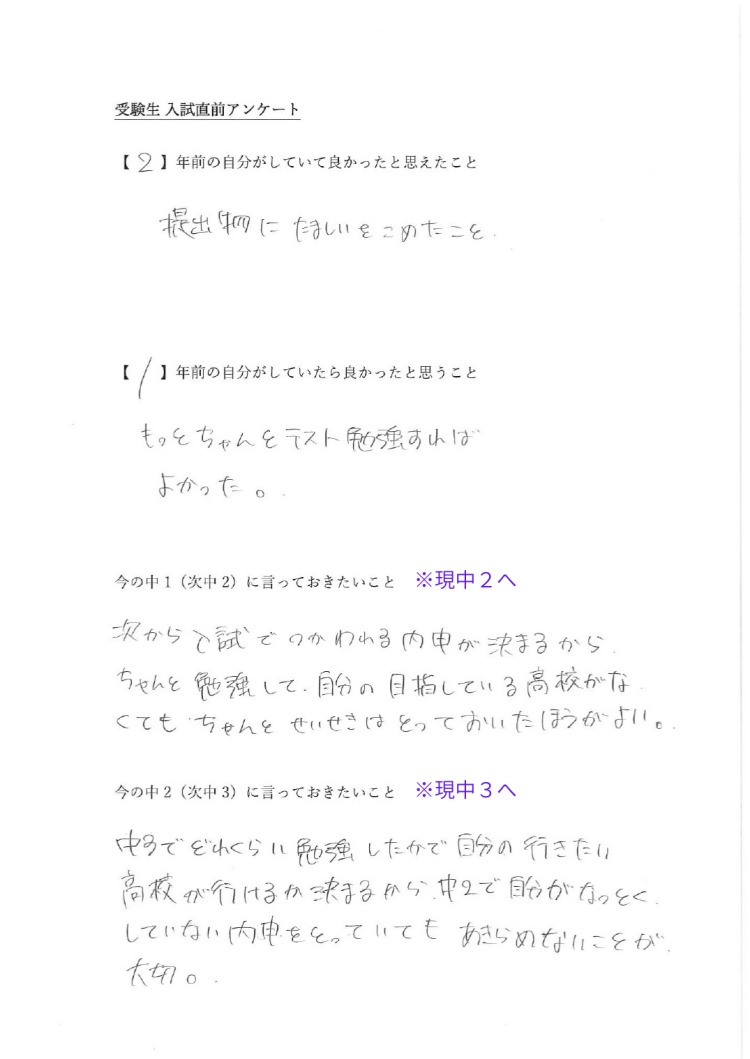 受験生 入試直前アンケート
【 2 】年前の自分がしていて良かったと思えたこと
提出物に たましいをこめたこと.
【 1 】年前の自分がしていたら良かったと思うこと
もっとちゃんとテスト勉強すれば
よかった。
今の中1（次中2）に言っておきたいこと ※現中２へ
次から入試でつかわれる内申が決まるから、
ちゃんと勉強して、自分の目指している高校がな
くても ちゃんと せいせきは とっておいたほうがよい。
今の中2（次中3）に言っておきたいこと ※現中３へ
中3でどれくらい勉強したかで自分の行きたい
高校が行けるか決まるから、中2で自分がなっとく
していない内申をとっていても あきらめないことが
大切。